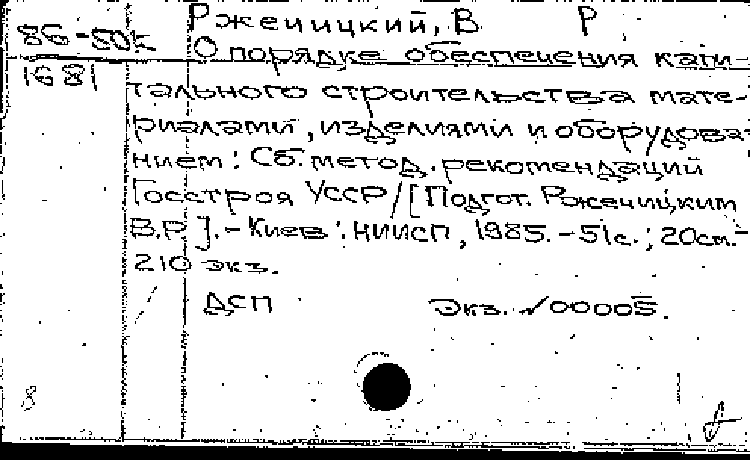 86-50к Ржечицкий, В Р.
1681 О порядке обеспечения капи-
тального строительства мате-
риалами, изделиями и оборудова-
нием: Сб. метод. рекомендаций
Госстроя УССР / [Подгот. Ржечицким
В.Р.]. - Киев: НИИСП, 1985. - 51с.; 20см. -
210 экз.
ДСП Экз. №00005.
8